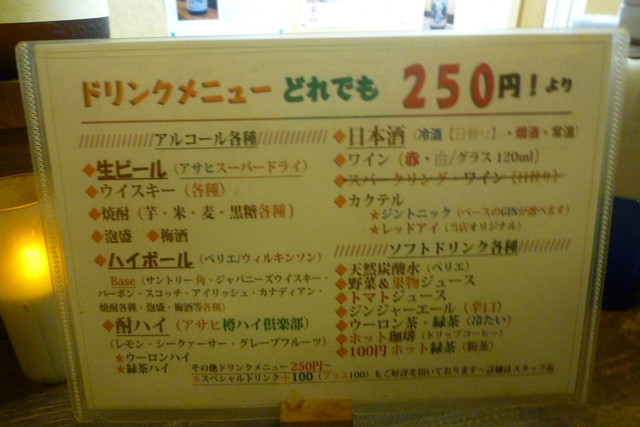 ドリンクメニュー どれでも 250円！より
アルコール各種
◆生ビール（アサヒスーパードライ）
◆ウイスキー（各種）
◆焼酎（芋・米・麦・黒糖各種）
◆泡盛 ◆梅酒
◆ハイボール（ペリエ/ウィルキンソン）
Base（サントリー角・ジャパニーズウイスキー・
バーボン・スコッチ・アイリッシュ・カナディアン・
焼酎各種・泡盛・梅酒等各種）
◆酎ハイ（アサヒ樽ハイ倶楽部）
（レモン・シークァーサー・グレープフルーツ）
★ウーロンハイ
★緑茶ハイ
◆日本酒（冷酒【日替り】・燗酒・常温）
◆ワイン（赤・白/グラス120ml）
◆スパークリング・ワイン【日替り】
◆カクテル
★ジントニック（ベースのGINが選べます）
★レッドアイ（当店オリジナル）
ソフトドリンク各種
◆天然炭酸水（ペリエ）
◆野菜＆果物ジュース
◆トマトジュース
◆ジンジャーエール（辛口）
◆ウーロン茶・緑茶（冷たい）
◆ホット珈琲（ドリップコーヒー）
◆100円 ホット緑茶（粉茶）
その他ドリンクメニュー250円～
※スペシャルドリンク＋100（プラス100）もご好評を頂いております～詳細はスタッフ迄